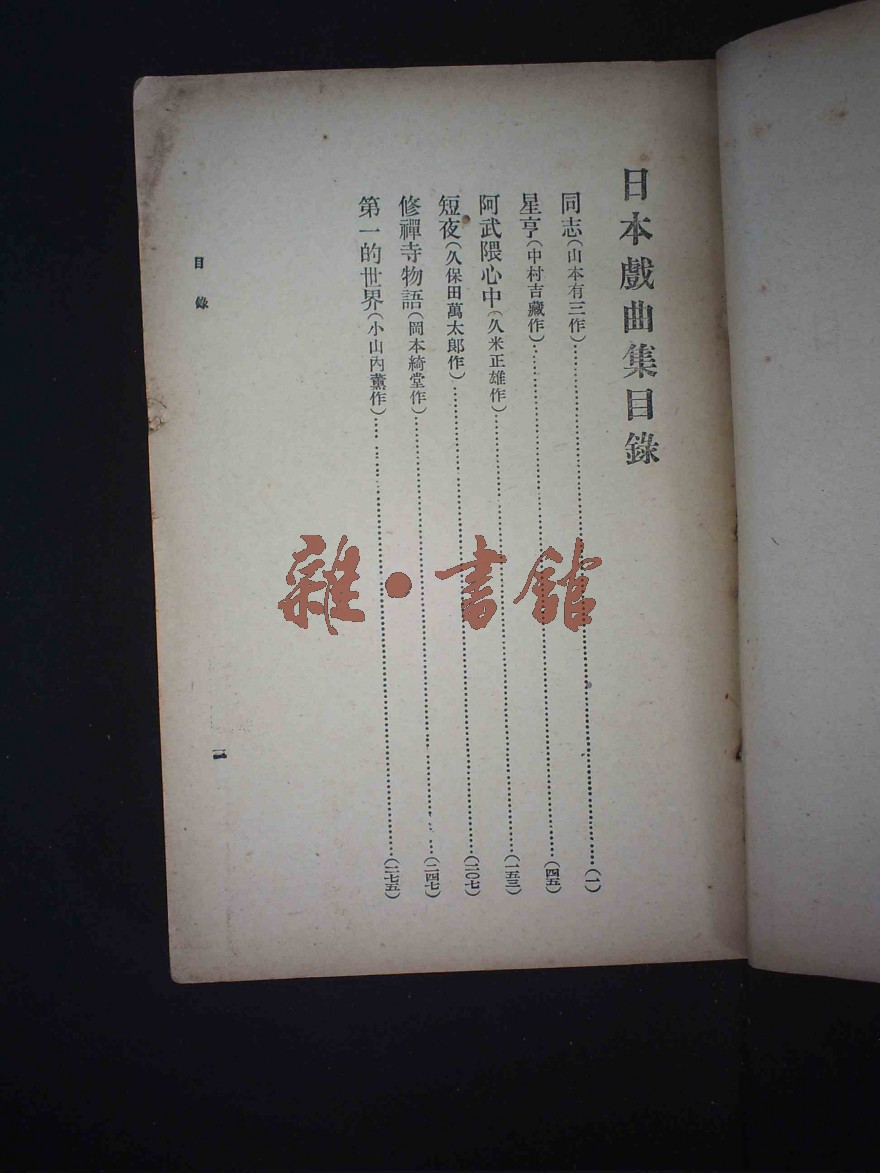 日本戲曲集目錄
同志(山本有三作)……(一)
星亨(中村吉藏作)……(四五)
阿武隈心中(久米正雄作)……(一五三)
短夜(久保田萬太郎作)……(二〇七)
修禪寺物語(岡本綺堂作)……(二四七)
第一的世界(小山內薰作)……(二七五)
目錄
一
雜·書館